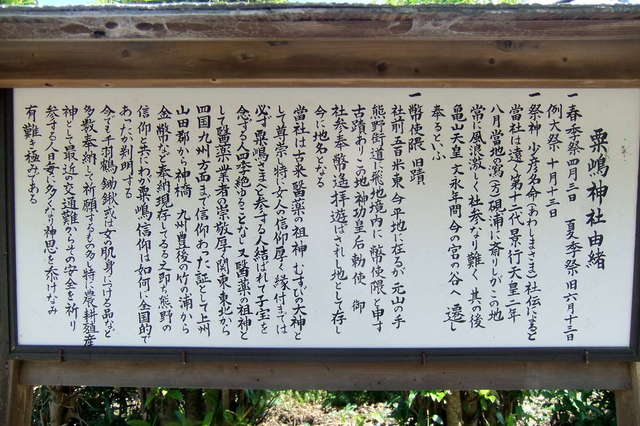 粟嶋神社由緒
一 春季祭 四月三日 夏季祭 旧六月十三日
例大祭 十月十三日
一 祭神 少彦名命(あわしまさま)社伝によると
當社は遠く第十二代景行天皇二年
八月當地の潟(方)硯浦に斎りしがこの地
常に風濤激しく社参なり難く 其の後
亀山天皇文永年間 今の宮の谷へ遷し
奉るといふ
一 幣使隈 旧蹟
社前五百米東 今平地に在るが 元山の手
熊野街道に飛地境内に 幣使隈と申す
古蹟あり この地神功皇后勅使 御
社参奉幣を遥拝遊ばされし地として存し
今も地名となる
當社は古来 医薬の祖神 むすびの大神と
して尊崇 特に女人の信仰厚く 縁付までは
必ず粟嶋さまへと参でる人 結ばれて子宝を
念ずる人四季絶ゆることなし 又醫薬の祖神と
して醫薬業者の崇敬厚く 関東東北から
四国九州方面まで信仰あつた証として上州
山田郡から神橋 九州豊後の竹の浦から
金幣など奉納 現存してゐる之即ち熊野の
信仰と共にわが粟嶋信仰は如何に全国的で
あつたか判明する
今でも千羽鶴 鋤鍬 或は女の肌身につける品など
多数奉納して祈願するもの多く 特に農耕殖産
神として 最近の交通難からその安全を祈り
参する人日毎に多くなり 神恩を忝けなみ
有難き極みである